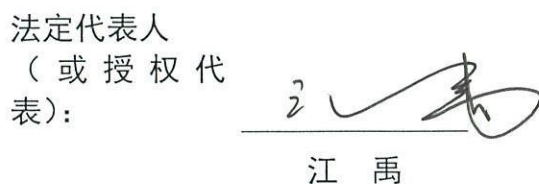 法定代表人
（或授权代
表）：
江 禹